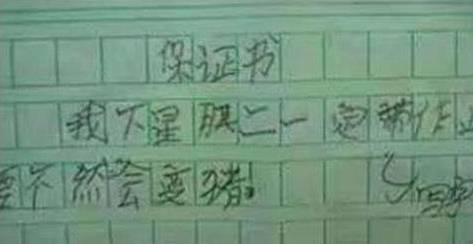 保证书
我下星期二一定带作
要不然会变猪。